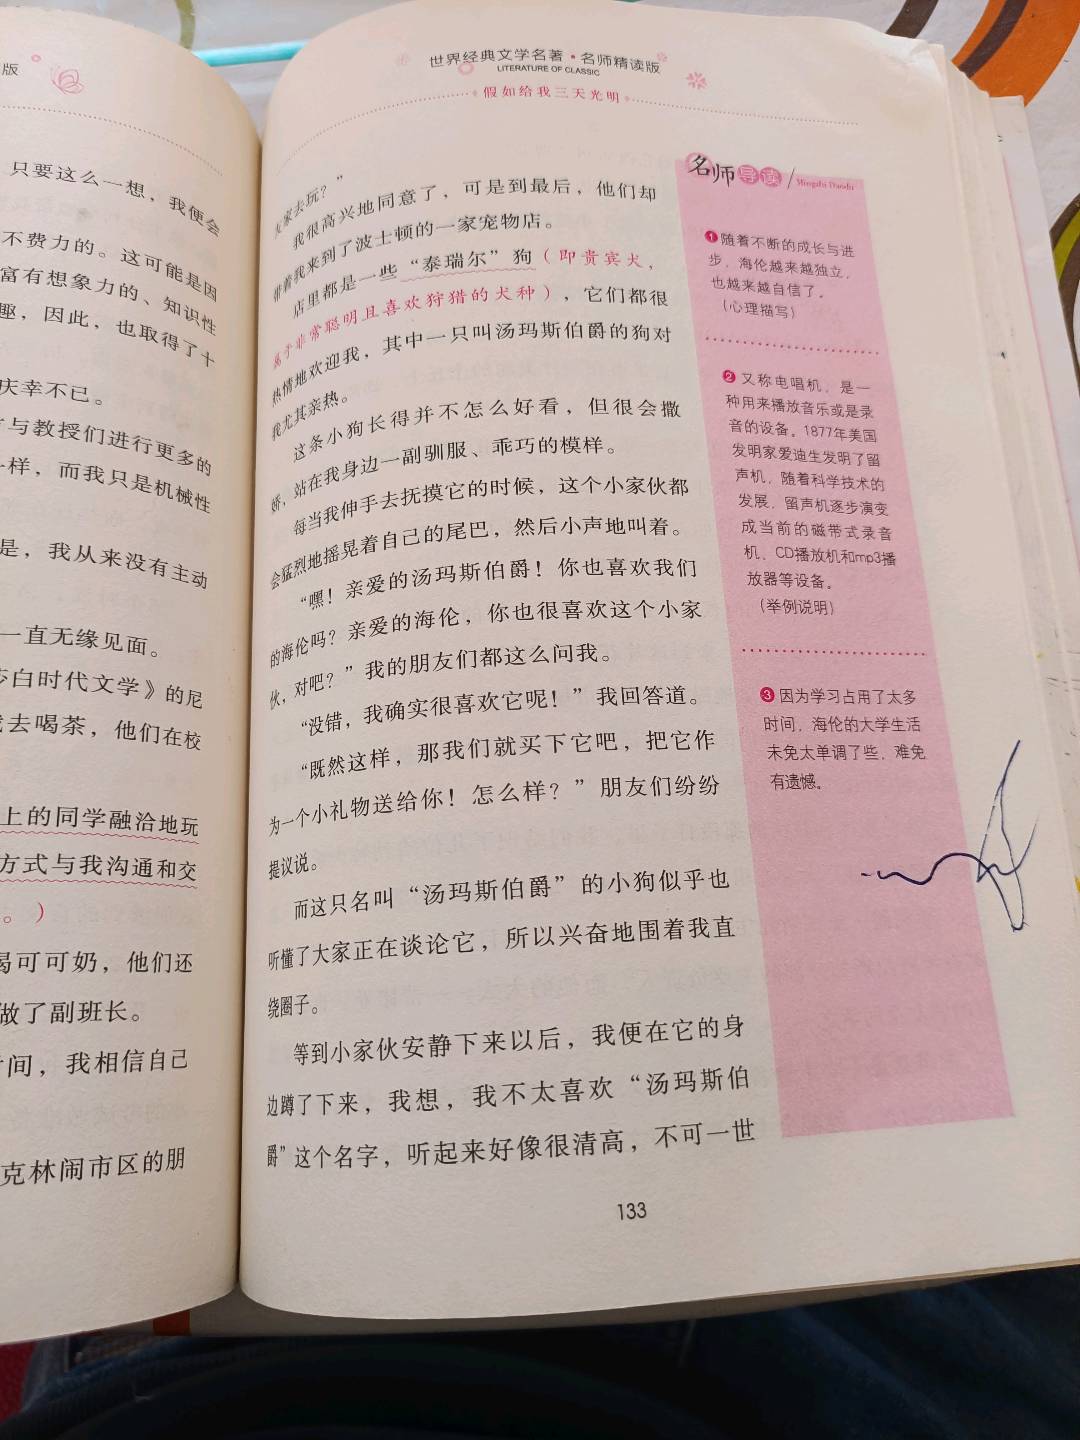 版
只要这么一想，我便会
不费力的。这可能是因
富有想象力的、知识性
趣，因此，也取得了十
庆幸不已。
与教授们进行更多的
样，而我只是机械性
是，我从来没有主动
一直无缘见面。
白时代文学》的尼
去喝茶，他们在校
上的同学融洽地玩
方式与我沟通和交
。）
喝可可奶，他们还
做了副班长。
间，我相信自己
克林闹市区的朋
世界经典文学名著·名师精读版
LITERATURE OF CLASSIC
假如给我三天光明
家去玩？”
我很高兴地同意了，可是到最后，他们却
带着我来到了波士顿的一家宠物店。
店里都是一些“泰瑞尔”狗（即贵宾犬，
属于非常聪明且喜欢狩猎的犬种），它们都很
热情地欢迎我，其中一只叫汤玛斯伯爵的狗对
我尤其亲热。
这条小狗长得并不怎么好看，但很会撒
娇，站在我身边一副驯服、乖巧的模样。
每当我伸手去抚摸它的时候，这个小家伙都
会猛烈地摇晃着自己的尾巴，然后小声地叫着。
“嘿！亲爱的汤玛斯伯爵！你也喜欢我们
的海伦吗？亲爱的海伦，你也很喜欢这个小家
伙，对吧？”我的朋友们都这么问我。
“没错，我确实很喜欢它呢！”我回答道。
“既然这样，那我们就买下它吧，把它作
为一个小礼物送给你！怎么样？”朋友们纷纷
提议说。
而这只名叫“汤玛斯伯爵”的小狗似乎也
听懂了大家正在谈论它，所以兴奋地围着我直
绕圈子。
等到小家伙安静下来以后，我便在它的身
边蹲了下来，我想，我不太喜欢“汤玛斯伯
爵”这个名字，听起来好像很清高，不可一世
133
名师导读 / Mingshi Daodu
❶随着不断的成长与进
步，海伦越来越独立，
也越来越自信了。
（心理描写）
❷又称电唱机，是一
种用来播放音乐或是录
音的设备。1877年美国
发明家爱迪生发明了留
声机，随着科学技术的
发展，留声机逐步演变
成当前的磁带式录音
机、CD播放机和mp3播
放器等设备。
（举例说明）
❸因为学习占用了太多
时间，海伦的大学生活
未免太单调了些，难免
有遗憾。